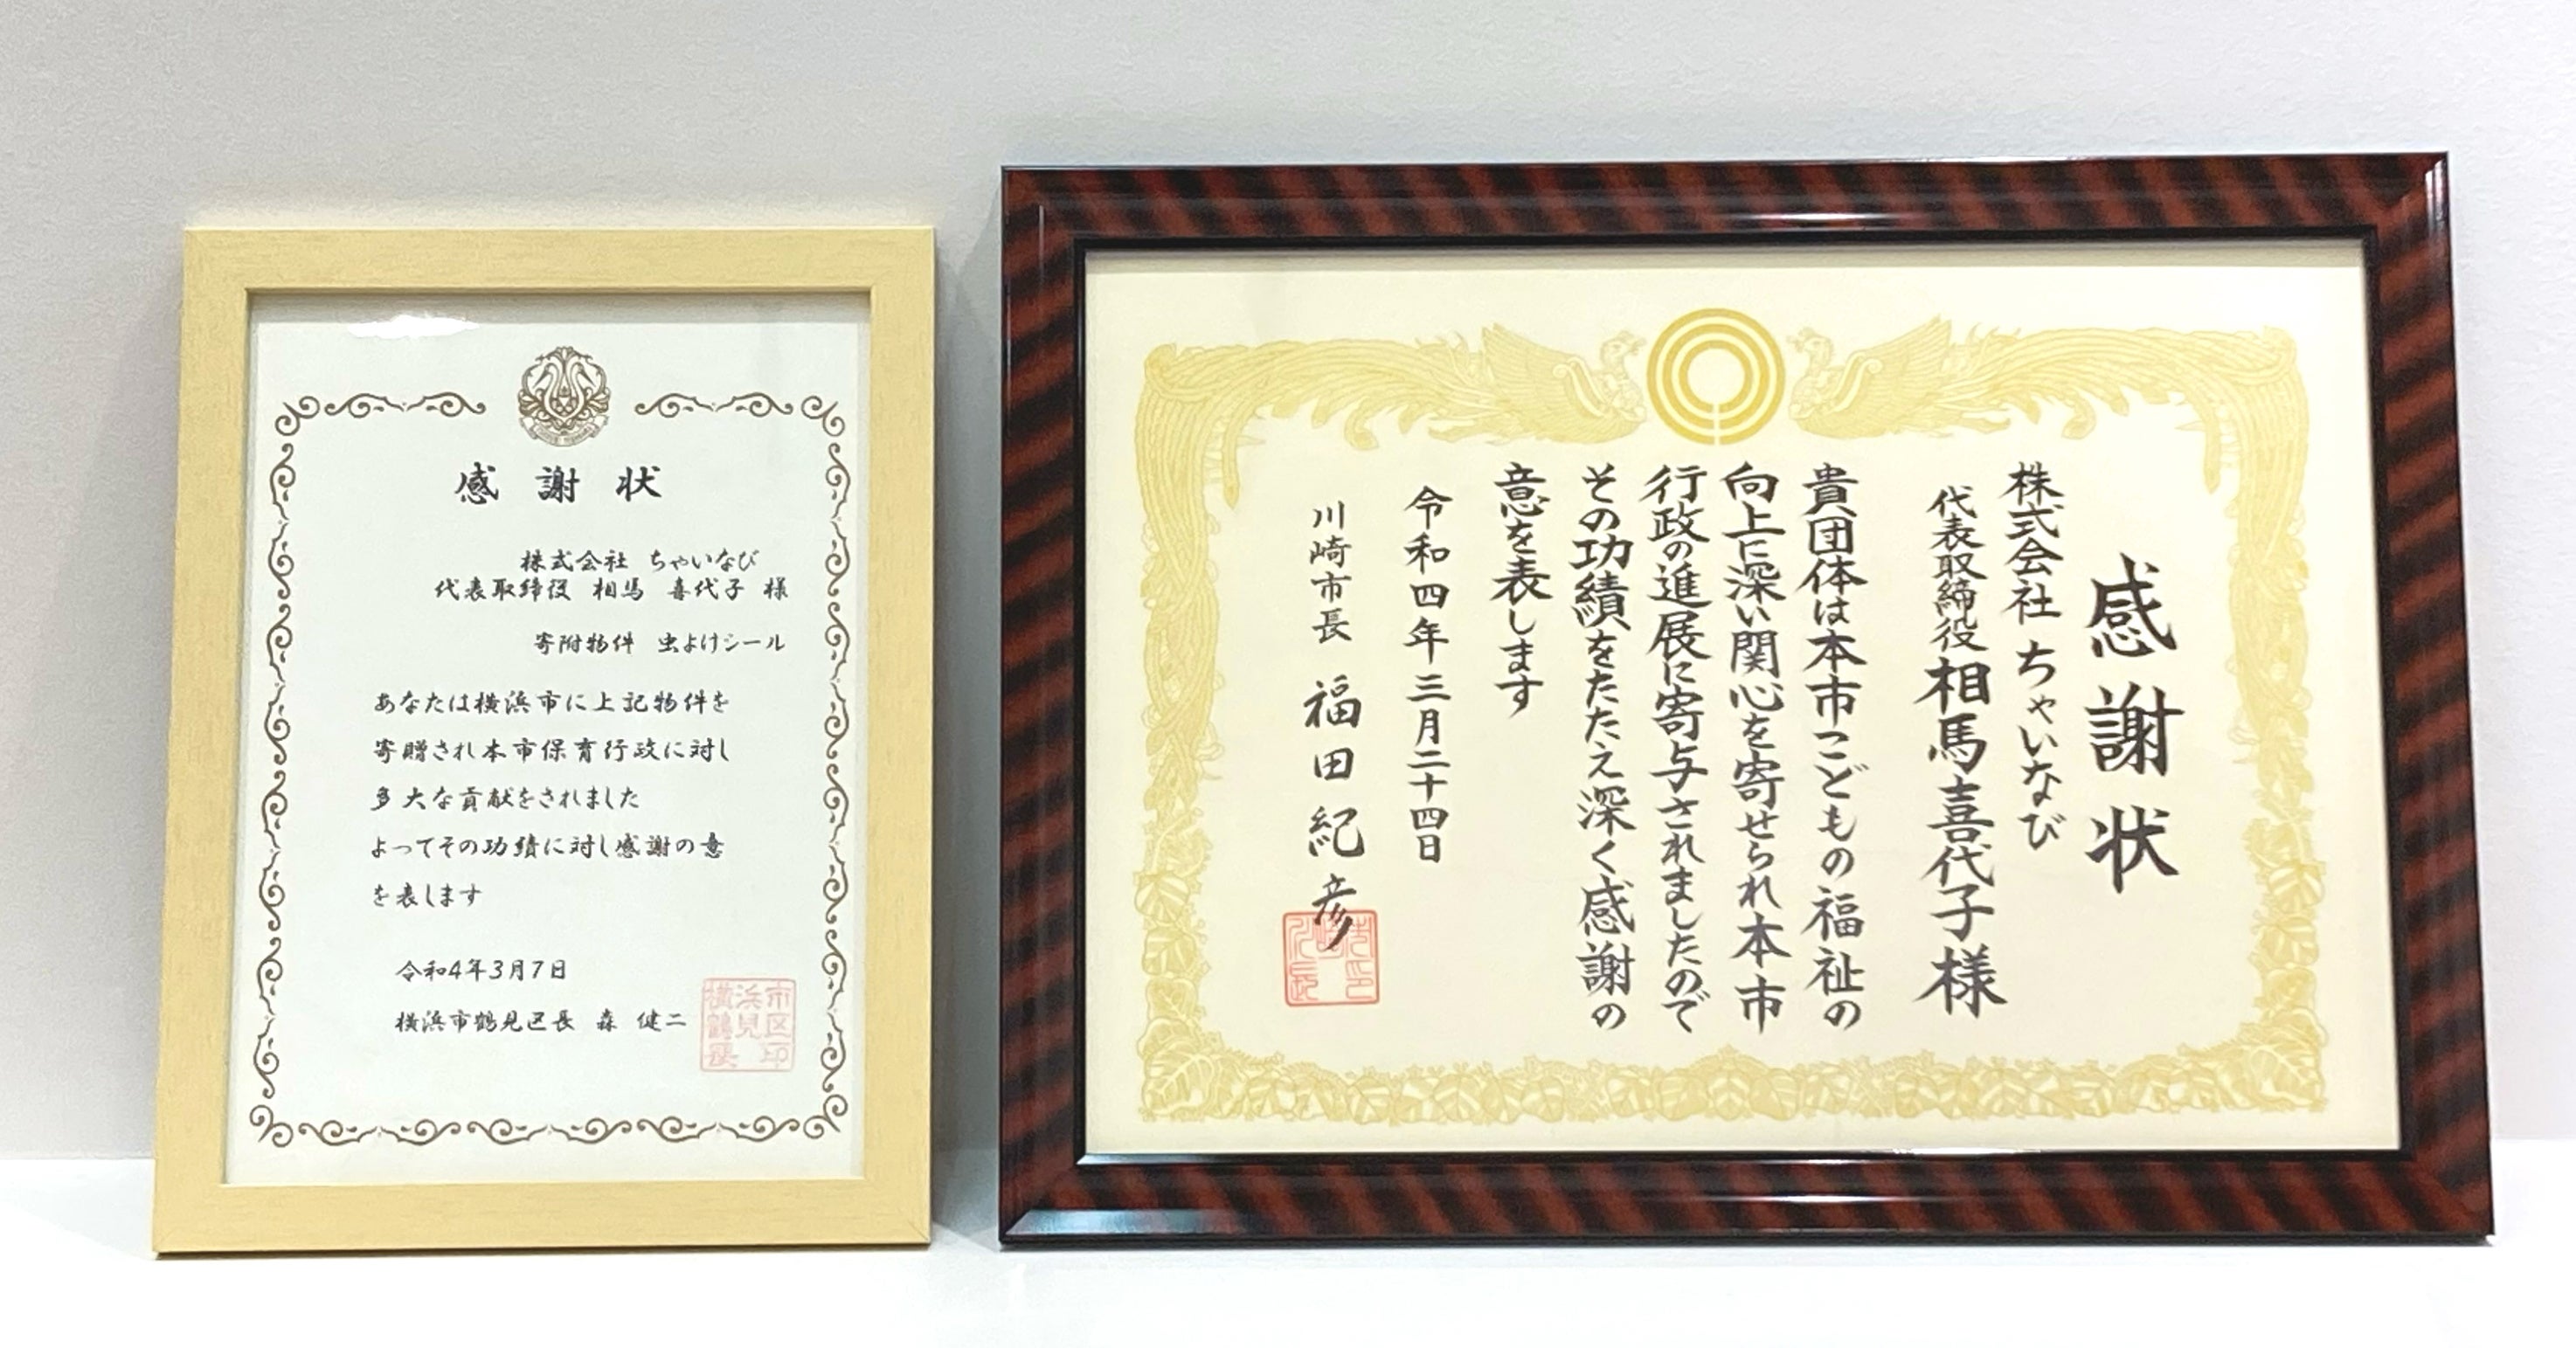 感謝状
株式会社 ちゃいなび
代表取締役 相馬 喜代子 様
寄附物件 虫よけシール
あなたは横浜市に上記物件を
寄贈され本市保育行政に対し
多大な貢献をされました
よってその功績に対し感謝の意
を表します
令和4年3月7日
横浜市鶴見区長 森 健二
感謝状
株式会社 ちゃいなび
代表取締役 相馬喜代子様
貴団体は本市こどもの福祉の
向上に深い関心を寄せられ本市
行政の進展に寄与されましたので
その功績をたたえ深く感謝の
意を表します
令和四年三月二十四日
川崎市長 福田紀彦